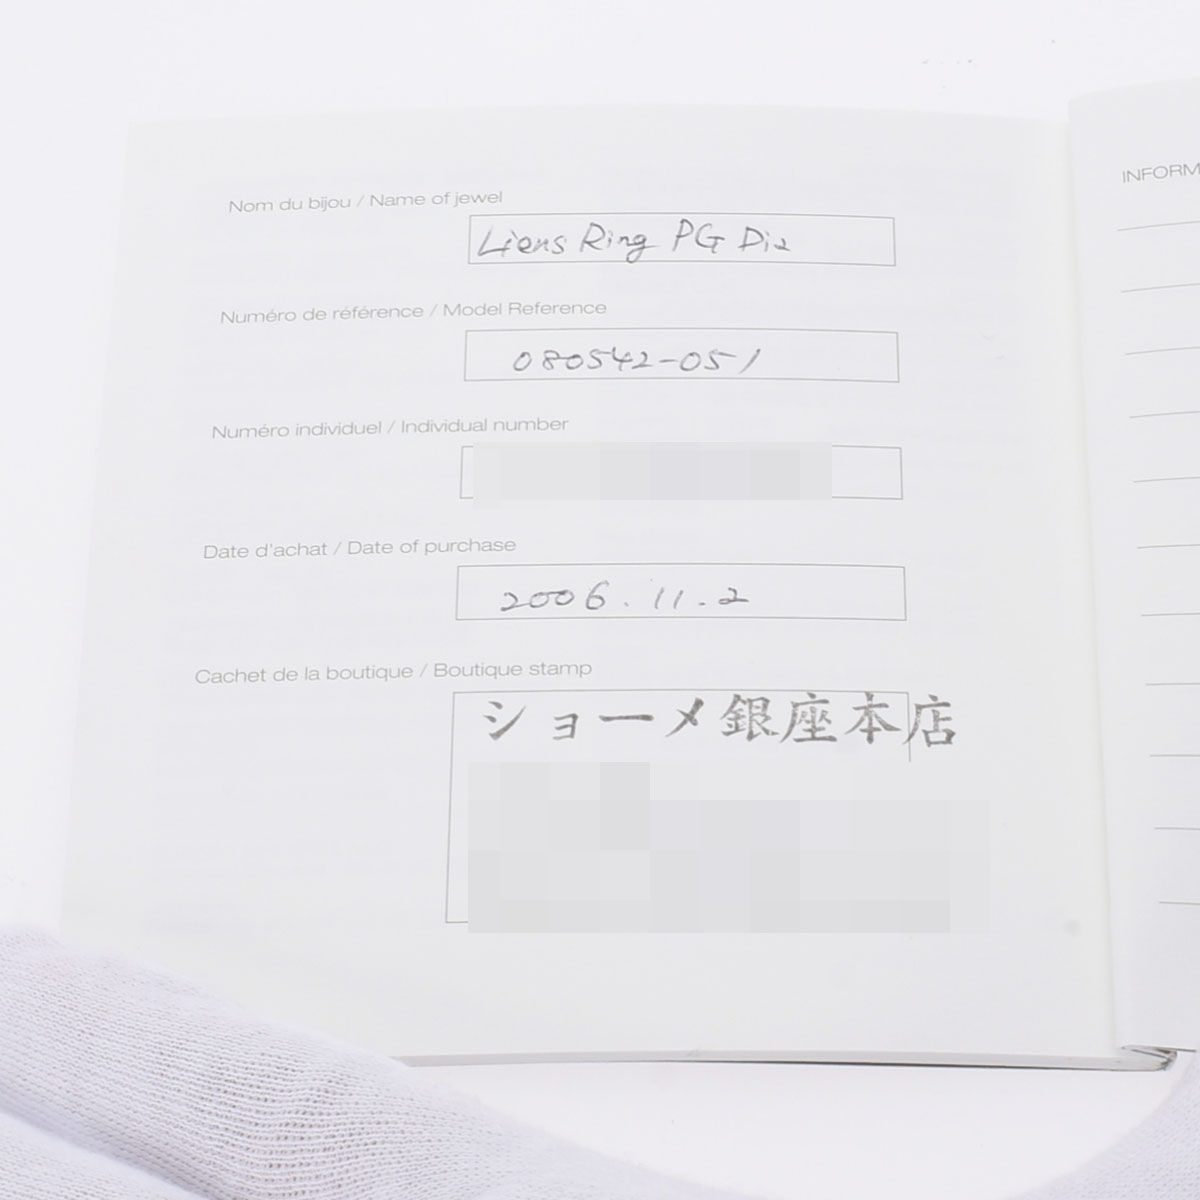 Nom du bijou / Name of jewel
Liens Ring PG Dia
Numéro de référence / Model Reference
080542-051
Numéro individuel / Individual number
Date d'achat / Date of purchase
2006.11.2
Cachet de la boutique / Boutique stamp
ショーメ銀座本店
INFORM